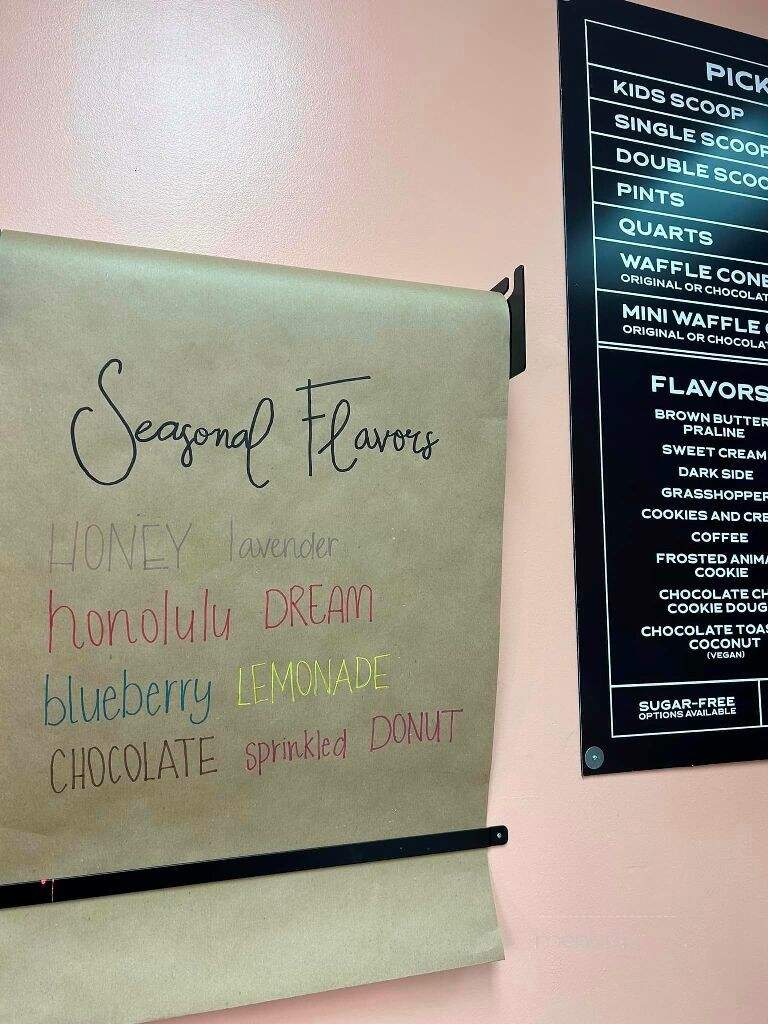 Seasonal Flavors
HONEY lavender
honolulu DREAM
blueberry LEMONADE
CHOCOLATE sprinkled DONUT
PICK
KIDS SCOOP
SINGLE SCOOP
DOUBLE SCOO
PINTS
QUARTS
WAFFLE CONE
ORIGINAL OR CHOCOLAT
MINI WAFFLE
ORIGINAL OR CHOCOLAT
FLAVORS
BROWN BUTTER
PRALINE
SWEET CREAM
DARK SIDE
GRASSHOPPER
COOKIES AND CRE
COFFEE
FROSTED ANIMA
COOKIE
CHOCOLATE CH
COOKIE DOUG
CHOCOLATE TOAS
COCONUT
(VEGAN)
SUGAR-FREE
OPTIONS AVAILABLE